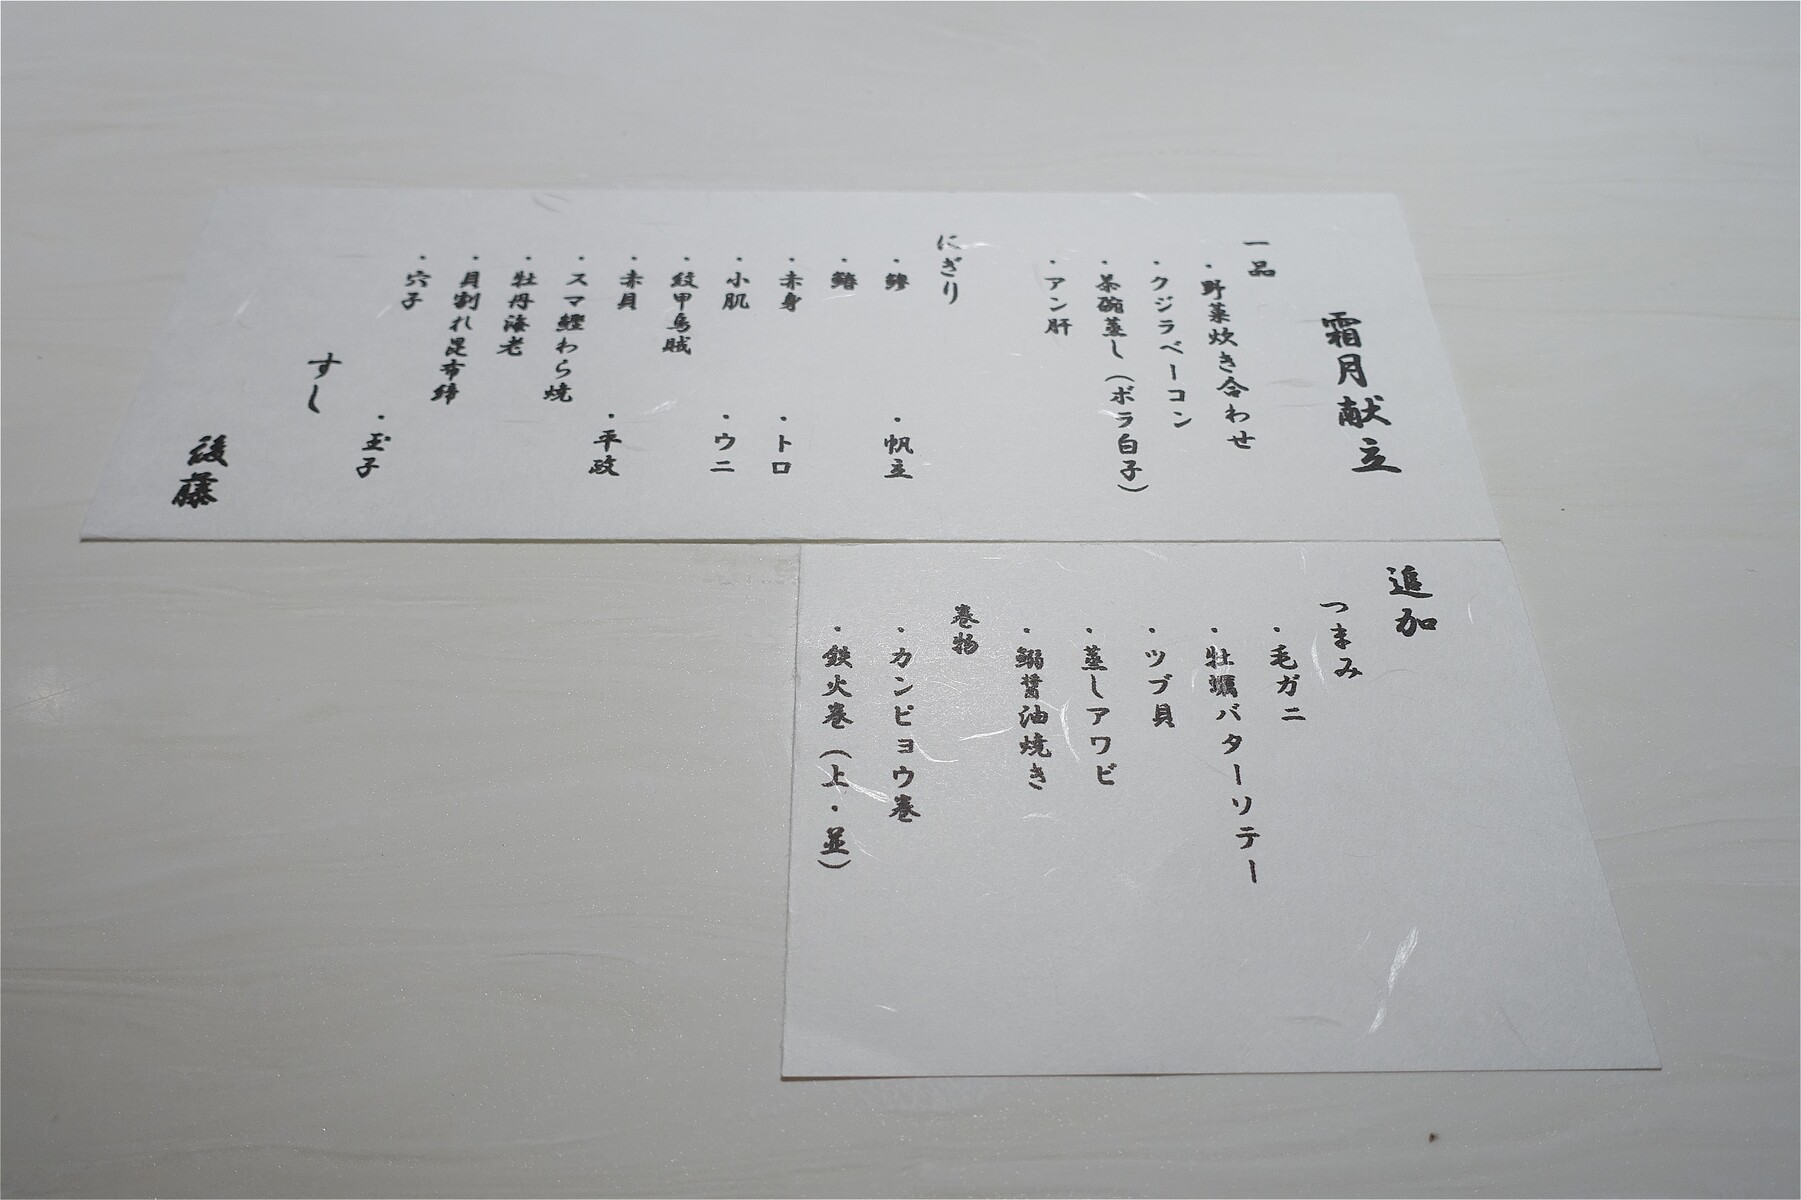 霜月献立
一品
・野菜炊き合わせ
・クジラベーコン
・茶碗蒸し（ボラ白子）
・アン肝
にぎり
・鯵　・帆立
・鰆
・赤身　・トロ
・小肌　・ウニ
・紋甲烏賊
・赤貝　・平政
・スマ鰹わら焼
・牡丹海老
・貝割れ昆布締
・穴子　・玉子
すし
後藤
追加
つまみ
・毛ガニ
・牡蠣バターソテー
・ツブ貝
・蒸しアワビ
・鰯醤油焼き
巻物
・カンピョウ巻
・鉄火巻（上・並）